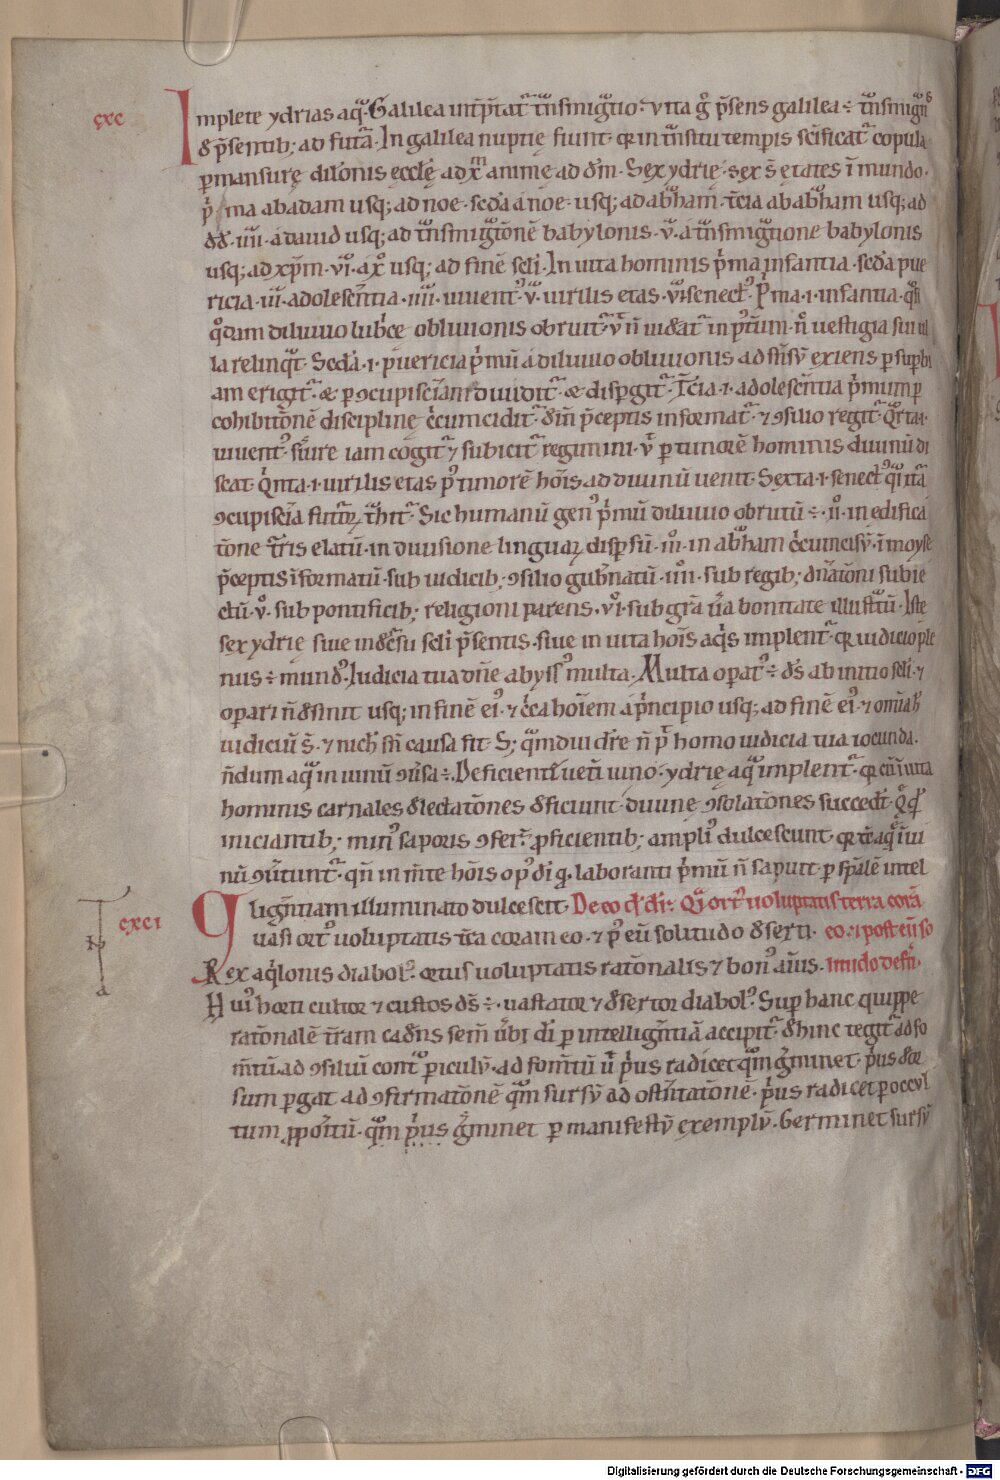 cxc
Implete ydrias aq̄. Galilea int̄p̄tat᷑ t̄nsmig̃tio. vita g̊ p̄sens galilea ÷ t̄nsmig̃ns
de p̄sentib; ad fut̄a. In galilea nuptię fiunt. q̄ in t̄nsitu temp̄is sc̄ificat᷑ copula
p̱mansurę dil̄onis eccl̄ę ad xp̄m animę ad dm̄. Sex ydrię. sex s̄ ętates ī mundo.
p̄ma ab adam usq; ad noe. sc̄da a noe usq; ad ab̄ham. t̄cia ab ab̄ham usq; ad
dd̄. iiii. a dauid usq; ad t̄nsmig̃tōnē babylonis. v. a t̄nsmig̃tione babylonis
usq; ad xp̄m. vi. a xp̄o usq; ad finē sc̄li. In uita hominis p̄ma infantia. sc̄da pue
ricia. iii. adolescentia. iiii. iuuent᷒. v. uirilis etas. vi. senect᷒. P̄ma .i. infantia. q̄si
q̊dam diluuio lubrice obliuionis obruit᷑. v̄ n̄ uideat᷑ in p̄t̄itum. n̄ uestigia sui ul
la relinq̄t. Sc̄da .i. puericia p̄mū a diluuio obliuionis ad sensū exiens p̱ sup̱bi
am erigit᷑. & p̱ ꝯcupiscīam diuidit᷑. & disp̱git᷑. T̄cia .i. adolescentia p̄mum p̱
cohibitōnē disciplinę c̄cumcidit᷑. dein̄ p̄ceptis informat᷑. ⁊ ꝯsilio regit᷑. Q̄rta .i.
iuuent᷒. seruire iam cogit᷑ ⁊ subicit᷑ regimini. v̄ p̱ timorē hominis diuinū di
scat. Q̄nta .i. uirilis etas p᷒ timorē hoīs ad diuinū uenit. Sexta .i. senect᷒
ꝯcupiscīa Sic humanū gen᷒ p̄mū diluuio obrutū ÷. ii. in edifica
tōne t̄ris elatū. in diuisione linguaꝝ disp̱sū. iii. in ab̄ham c̄cumcisū. ī moyse
p̄ceptis īformatū. sub iudicib; ꝯsilio gub̄natū. iiii. sub regib; dn̄atōni subie
ctū. v. sub pontificib; religioni parens. vi. sub gr̄a bonitate illustratū. Iste
sex ydrię siue in dec̄su sc̄li p̄sentis. siue in uita hoīs aq̄s implent᷑. q̄ iudicio ple
nus ÷ mund᷒. Iudicia tua dn̄e abyss᷒ multa. Multa op̱at᷒ ÷ ds̄ ab initio sc̄li. ⁊
op̱ari n̄ desinit usq; in finē ei᷒. ⁊ c̄ca hoīem a p̄ncipio usq; ad finē ei᷒. ⁊ omīa h᷒
iudiciū s̄. ⁊ nich̄ sn̄ causa fit. S; q̄mdiu homo iudicia tua iocunda.
n̄dum aq̄ in uinū ꝯuersa ÷. Deficiente ueti uino. ydrię aq̄ implent᷑. q̄ cū ī uita
hominis carnales delectatōnes deficiunt. diuinę ꝯsolatōnes succedt̄.
iniciantib; min᷒ saporis ꝯfert᷑. ꝓficientib; ampli᷒ dulcescunt.
nū ꝯūtunt᷑. qn̄ in mente hoīs op᷒ di q̄. laboranti p̄mū n̄ sapuit. p̱ sp̄alē intel
cxci
ligentiam illuminato dulcescit. De eo q̄d dr̄. Q̄si ort᷒ uoluptatis terra corā
Quasi ort᷒ uoluptatis t̄ra coram eo. ⁊ p᷒ eū solitudo deserti. eo. ⁊ post eū so
Rex aq̄lonis diabol᷒. ortus uoluptatis ratōnalis ⁊ bon᷒ aīus. litudo deserti.
Hui᷒ horti cultor ⁊ custos ds̄ ÷. uastator ⁊ desertor diabol᷒. Sup̱ hanc quippe
ratōnalē t̄ram cadens sem̄ u̇bi di p̱ intelligentiā accipit᷑. dehinc tegit᷑ ad fo
m̄tū. ad ꝯsiliū cont̄ p̱iculū. ad fomtū u᷑ p̄us radicet q̄m g̃minet. p̄us deor
sum p̱gat ad ꝯfirmatōnē q̄m sursū ad ostentatōnē. p̄us radicet p̱ occul
tum ꝓpositū. q̄m p̄us g̃minet p̱ manifestū exemplū. Germinet sursū
Digitalisierung gefördert durch die Deutsche Forschungsgemeinschaft - DFG